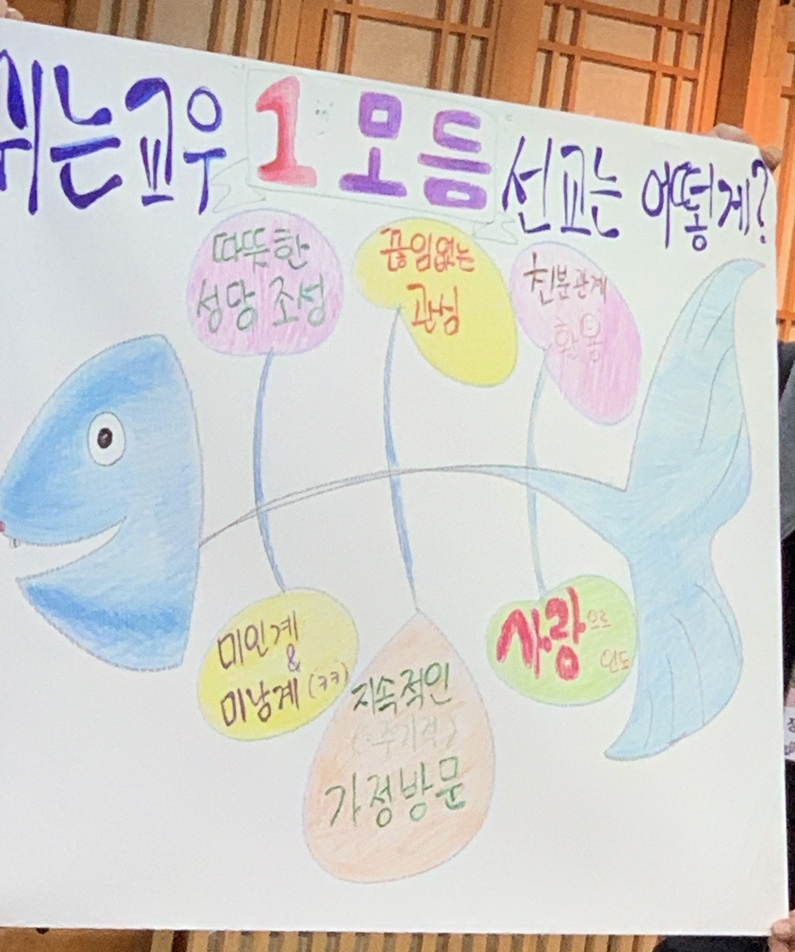 쉬는교우 1 모듬 선교는 어떻게?
따뜻한
성당 조성
끊임없는
관심
친분관계
활용
미인계
&
미남계 (ㅋㅋ)
지속적인
(주기적)
가정방문
사랑으로
인도